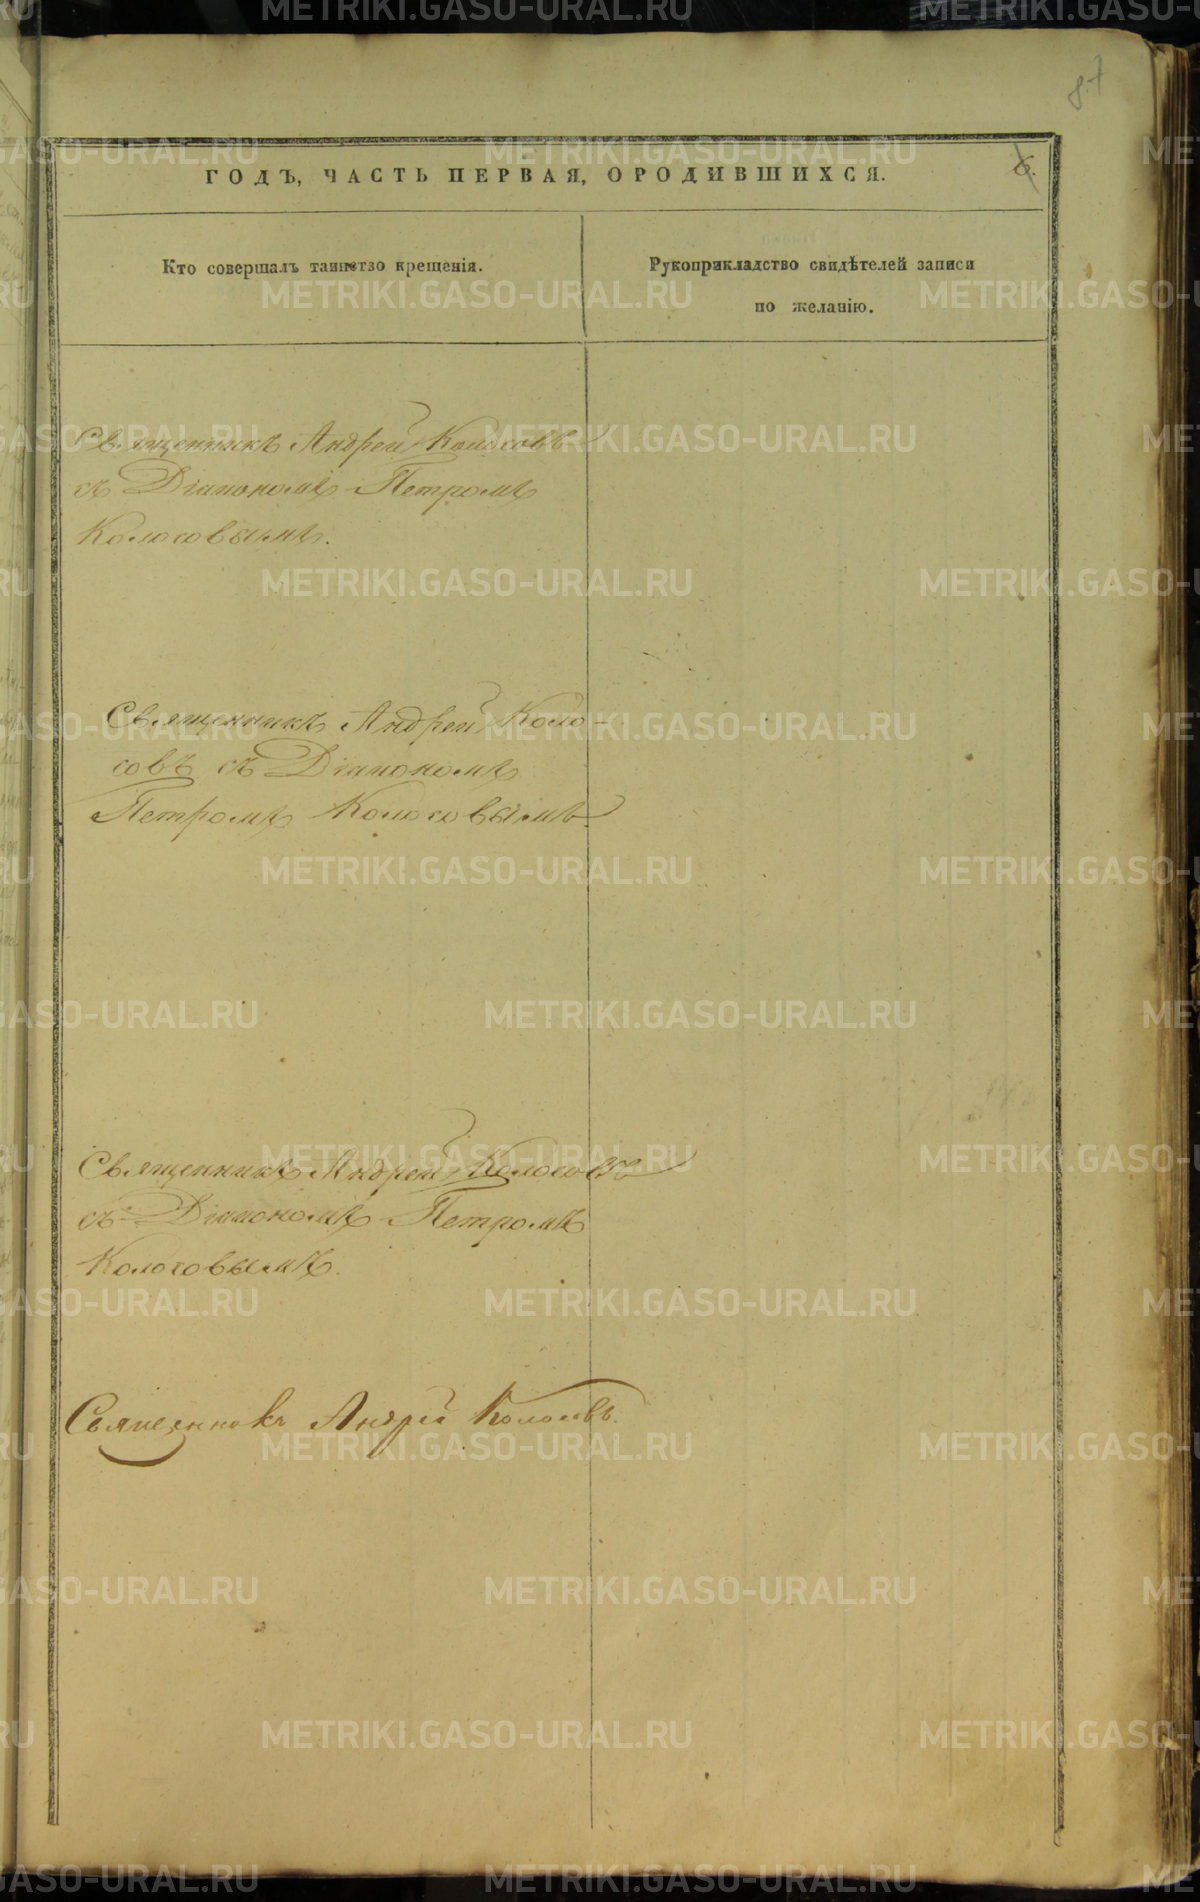 87
ГОДЪ, ЧАСТЬ ПЕРВАЯ, ОРОДИВШИХСЯ.
6.
Кто совершалъ таинство крещенія.
Рукоприкладство свидѣтелей записи
по желанію.
Священникъ Андрей Колосовъ
съ Діакономъ Петромъ
Колосовымъ.
Священникъ Андрей Коло-
совъ съ Діакономъ
Петромъ Колосовымъ.
Священникъ Андрей Колосовъ
съ Діакономъ Петромъ
Колосовымъ.
Священникъ Андрей Колосовъ.
METRIKI.GASO-URAL.RU